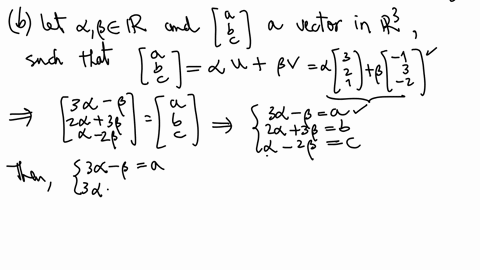 (b) let α, β ∈ ℝ and [a b c] a vector in ℝ³,
such that [a b c] = α u + β v = α [3 2 1] + β [-1 3 -2] ✓
⟹ [3α - β 2α + 3β α - 2β] = [a b c] ⟹ { 3α - β = a ✓ 2α + 3β = b α - 2β = c
Then, { 3α - β = a
3α